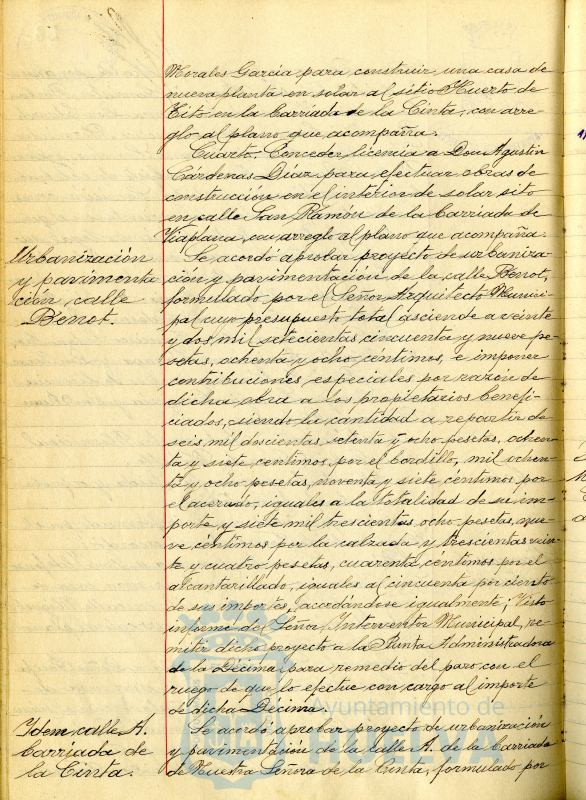 Morales García para construir una casa de
nueva planta en solar al sitio Huerto de
Tito en la barriada de la Cinta, con arre
glo al plano que acompaña.
Cuarto. Conceder licencia a Don Agustín
Cárdenas Díaz para efectuar obras de
construcción en el interior de solar sito
en calle San Ramón de la barriada de
Viaplana, con arreglo al plano que acompaña.
Urbanización
y pavimenta
ción calle
Berrot.
Se acordó aprobar proyecto de urbaniza
ción y pavimentación de la calle Berrot,
formulado por el Señor Arquitecto Munici
pal cuyo presupuesto total asciende a veinte
y dos mil setecientas cincuenta y nueve pe
setas, ochenta y ocho centimos, e imponer
contribuciones especiales por razón de
dicha obra a los propietarios benefi
ciados, siendo la cantidad a repartir de
seis mil doscientas setenta y ocho pesetas, ochen
ta y siete centimos por el bordillo, mil ochen
ta y ocho pesetas, noventa y siete céntimos por
el acerado, iguales a la totalidad de su im
porte y siete mil trescientas ocho pesetas, nue
ve céntimos por la calzada y trescientas vein
te y cuatro pesetas, cuarenta céntimos por el
alcantarillado, iguales al cincuenta por ciento
de sus importes, acordándose igualmente, Visto
informe del Señor Interventor Municipal, re
mitir dicho proyecto a la Junta Administradora
de la Décima para remedio del paro con el
ruego de que lo efectue con cargo al importe
de dicha Décima.
Idem calle A.
barriada de
la Cinta.
Se acordó aprobar proyecto de urbanización
y pavimentación de la calle A. de la barriada
de Nuestra Señora de la Cinta, formulado por
Ayuntamiento de
HUELVA